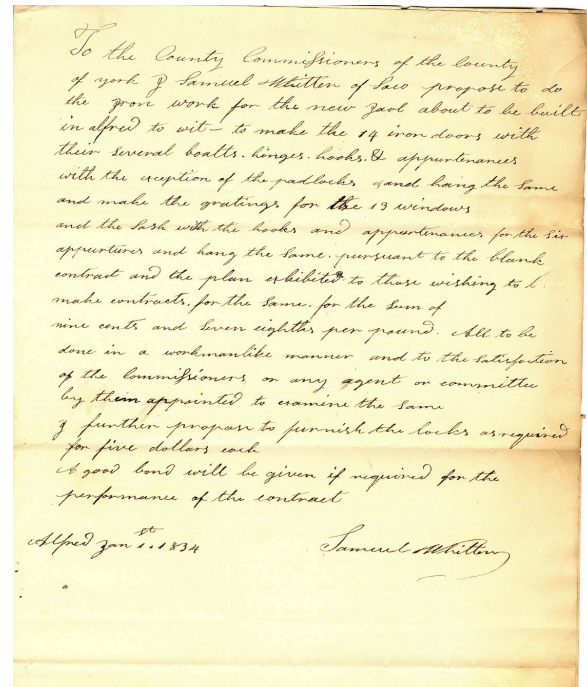 To the County Commissioners of the County
of york I Samuel Whitten of Saco propose to do
the Iron work for the new Jaol about to be built
in alfred to wit – to make the 14 iron doors with
their several boatts. hinges. hooks. & appurtenances
with the exception of the padlocks and hang the Same
and make the gratings for the 13 windows
and the Sash with the hooks and appertenances for the Six
appurtures and hang the Same. pursuant to the blank
contract and the plan exhibited to those wishing to
make contracts. for the Same. for the Sum of
nine cents and Seven eighths per pound. All to be
done in a workmanlike manner and to the Satisfaction
of the Commissioners or any agent or committee
by them appointed to examine the Same
I further propose to furnish the locks as required
for five dollars each
A good bond will be given if required for the
performance of the contract
Alfred Jan 1st. 1834 Samuel Whitten